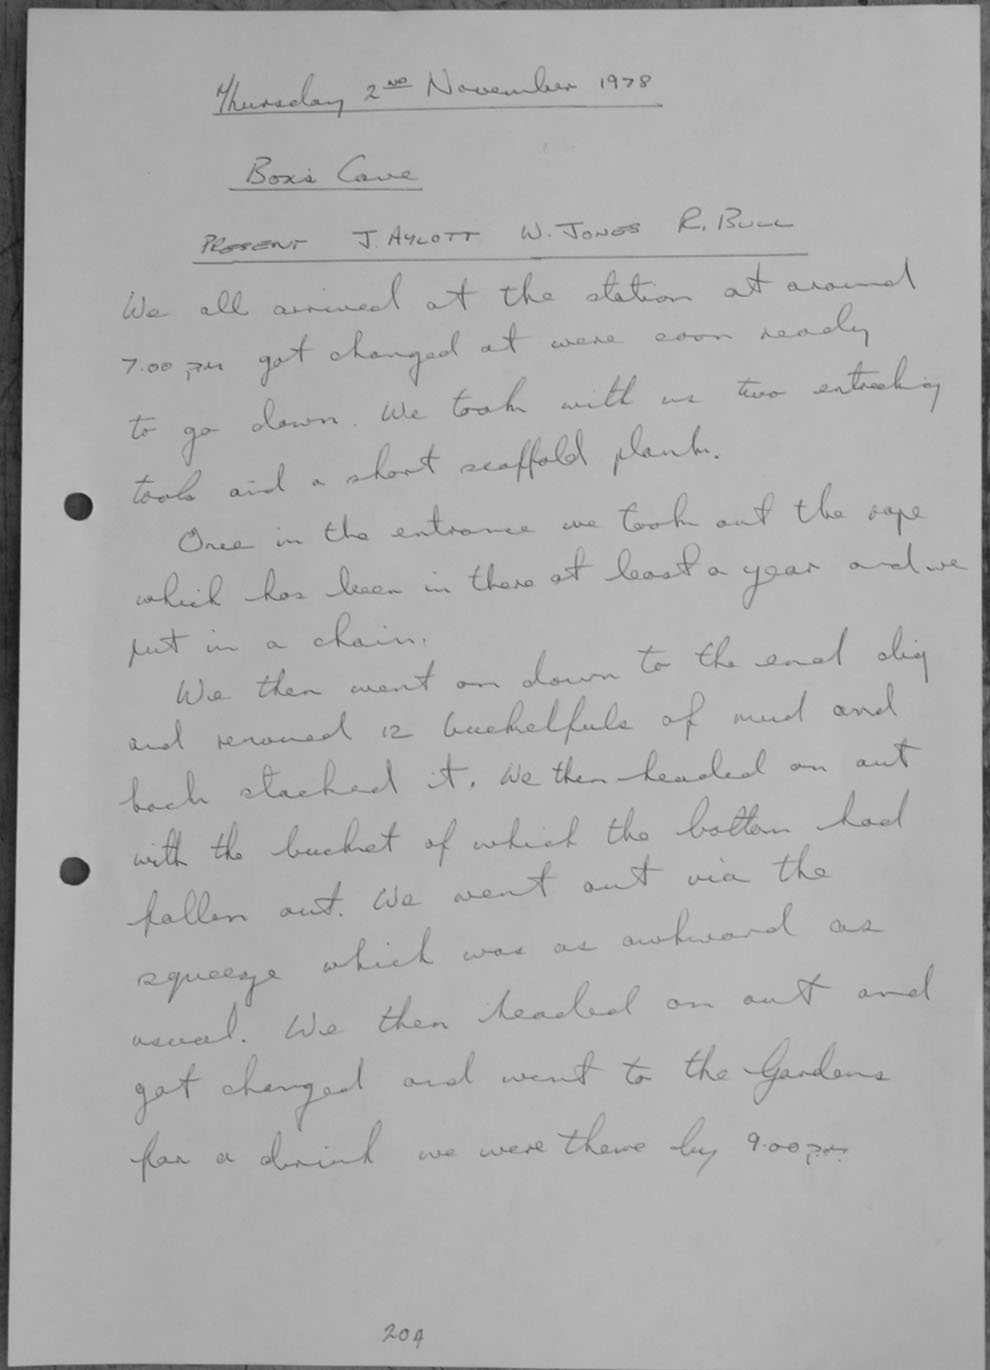 Thursday 2ND November 1978
Box's Cave
PRESENT J. AYLOTT W. JONES R. BULL
We all arrived at the station at around
7.00 PM got changed at were soon ready
to go down. We took with us two entrenching
tools and a short scaffold plank.
Once in the entrance we took out the rope
which has been in there at least a year and we
put in a chain.
We then went on down to the end dig
and removed 12 bucketfuls of mud and
back stacked it. We then headed on out
with the bucket of which the bottom had
fallen out. We went out via the
squeeze which was as awkward as
usual. We then headed on out and
got changed and went to the Gardens
for a drink we were there by 9.00 PM
204